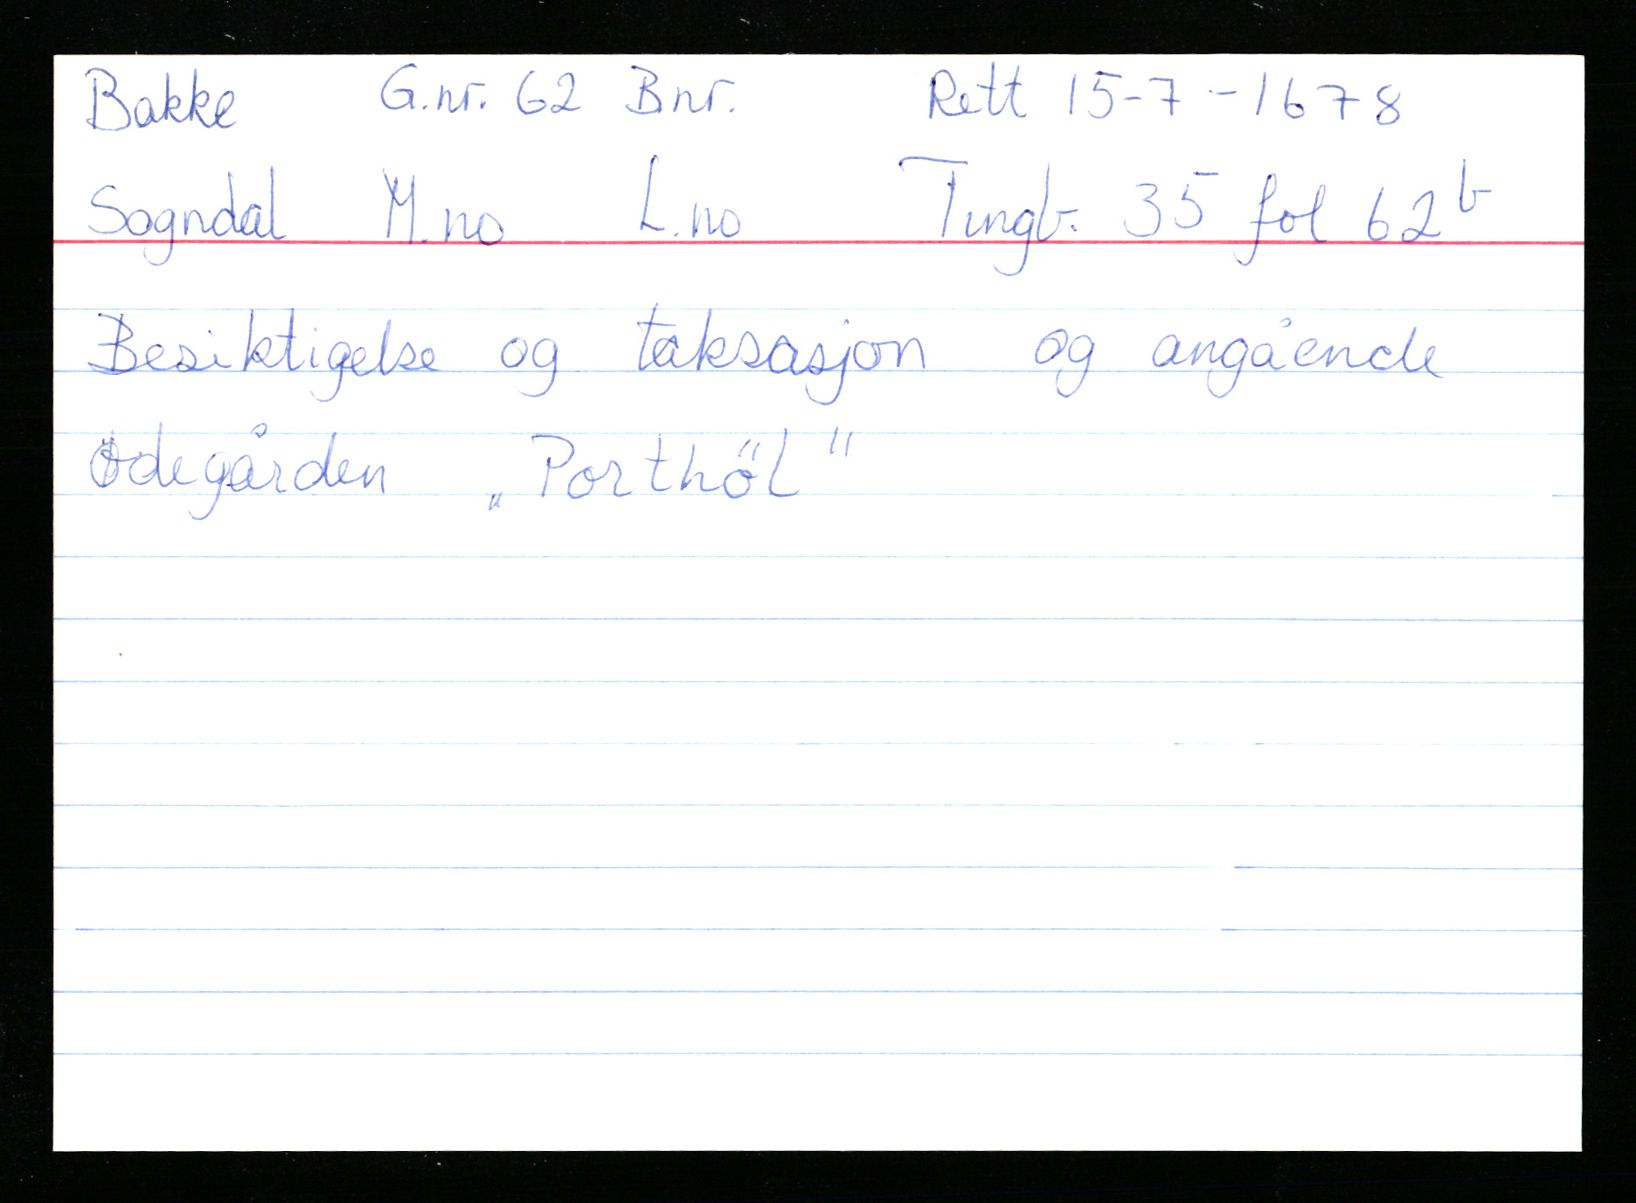 Bakke G.nr. 62 Bnr. Rett 15-7-1678
Sogndal M.no L.no Tingb. 35 fol 62b
Besiktigelse og taksasjon og angående
ødegården „Porthöl"